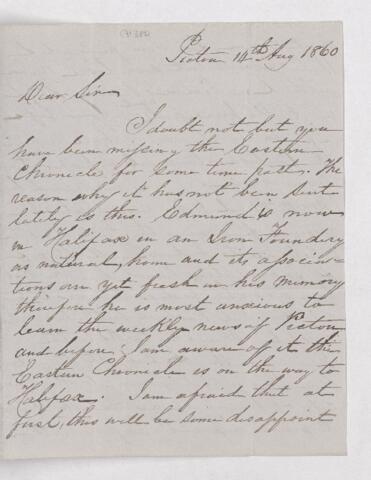 Pictou 14th Aug 1860
Dear Sir
I doubt not but you
have been missing the Eastern
Chronicle for some time past. The
reason why it has not been sent
lately is this. Edmund is now
in Halifax in an Iron Foundery
as natural, home and its associa-
tions are yet fresh in his memory
therefore he is most anxious to
learn the weekly news of Pictou
and before I am aware of it the
Eastern Chronicle is on the way to
Halifax. I am afraid that at
first, this will be some disappoint